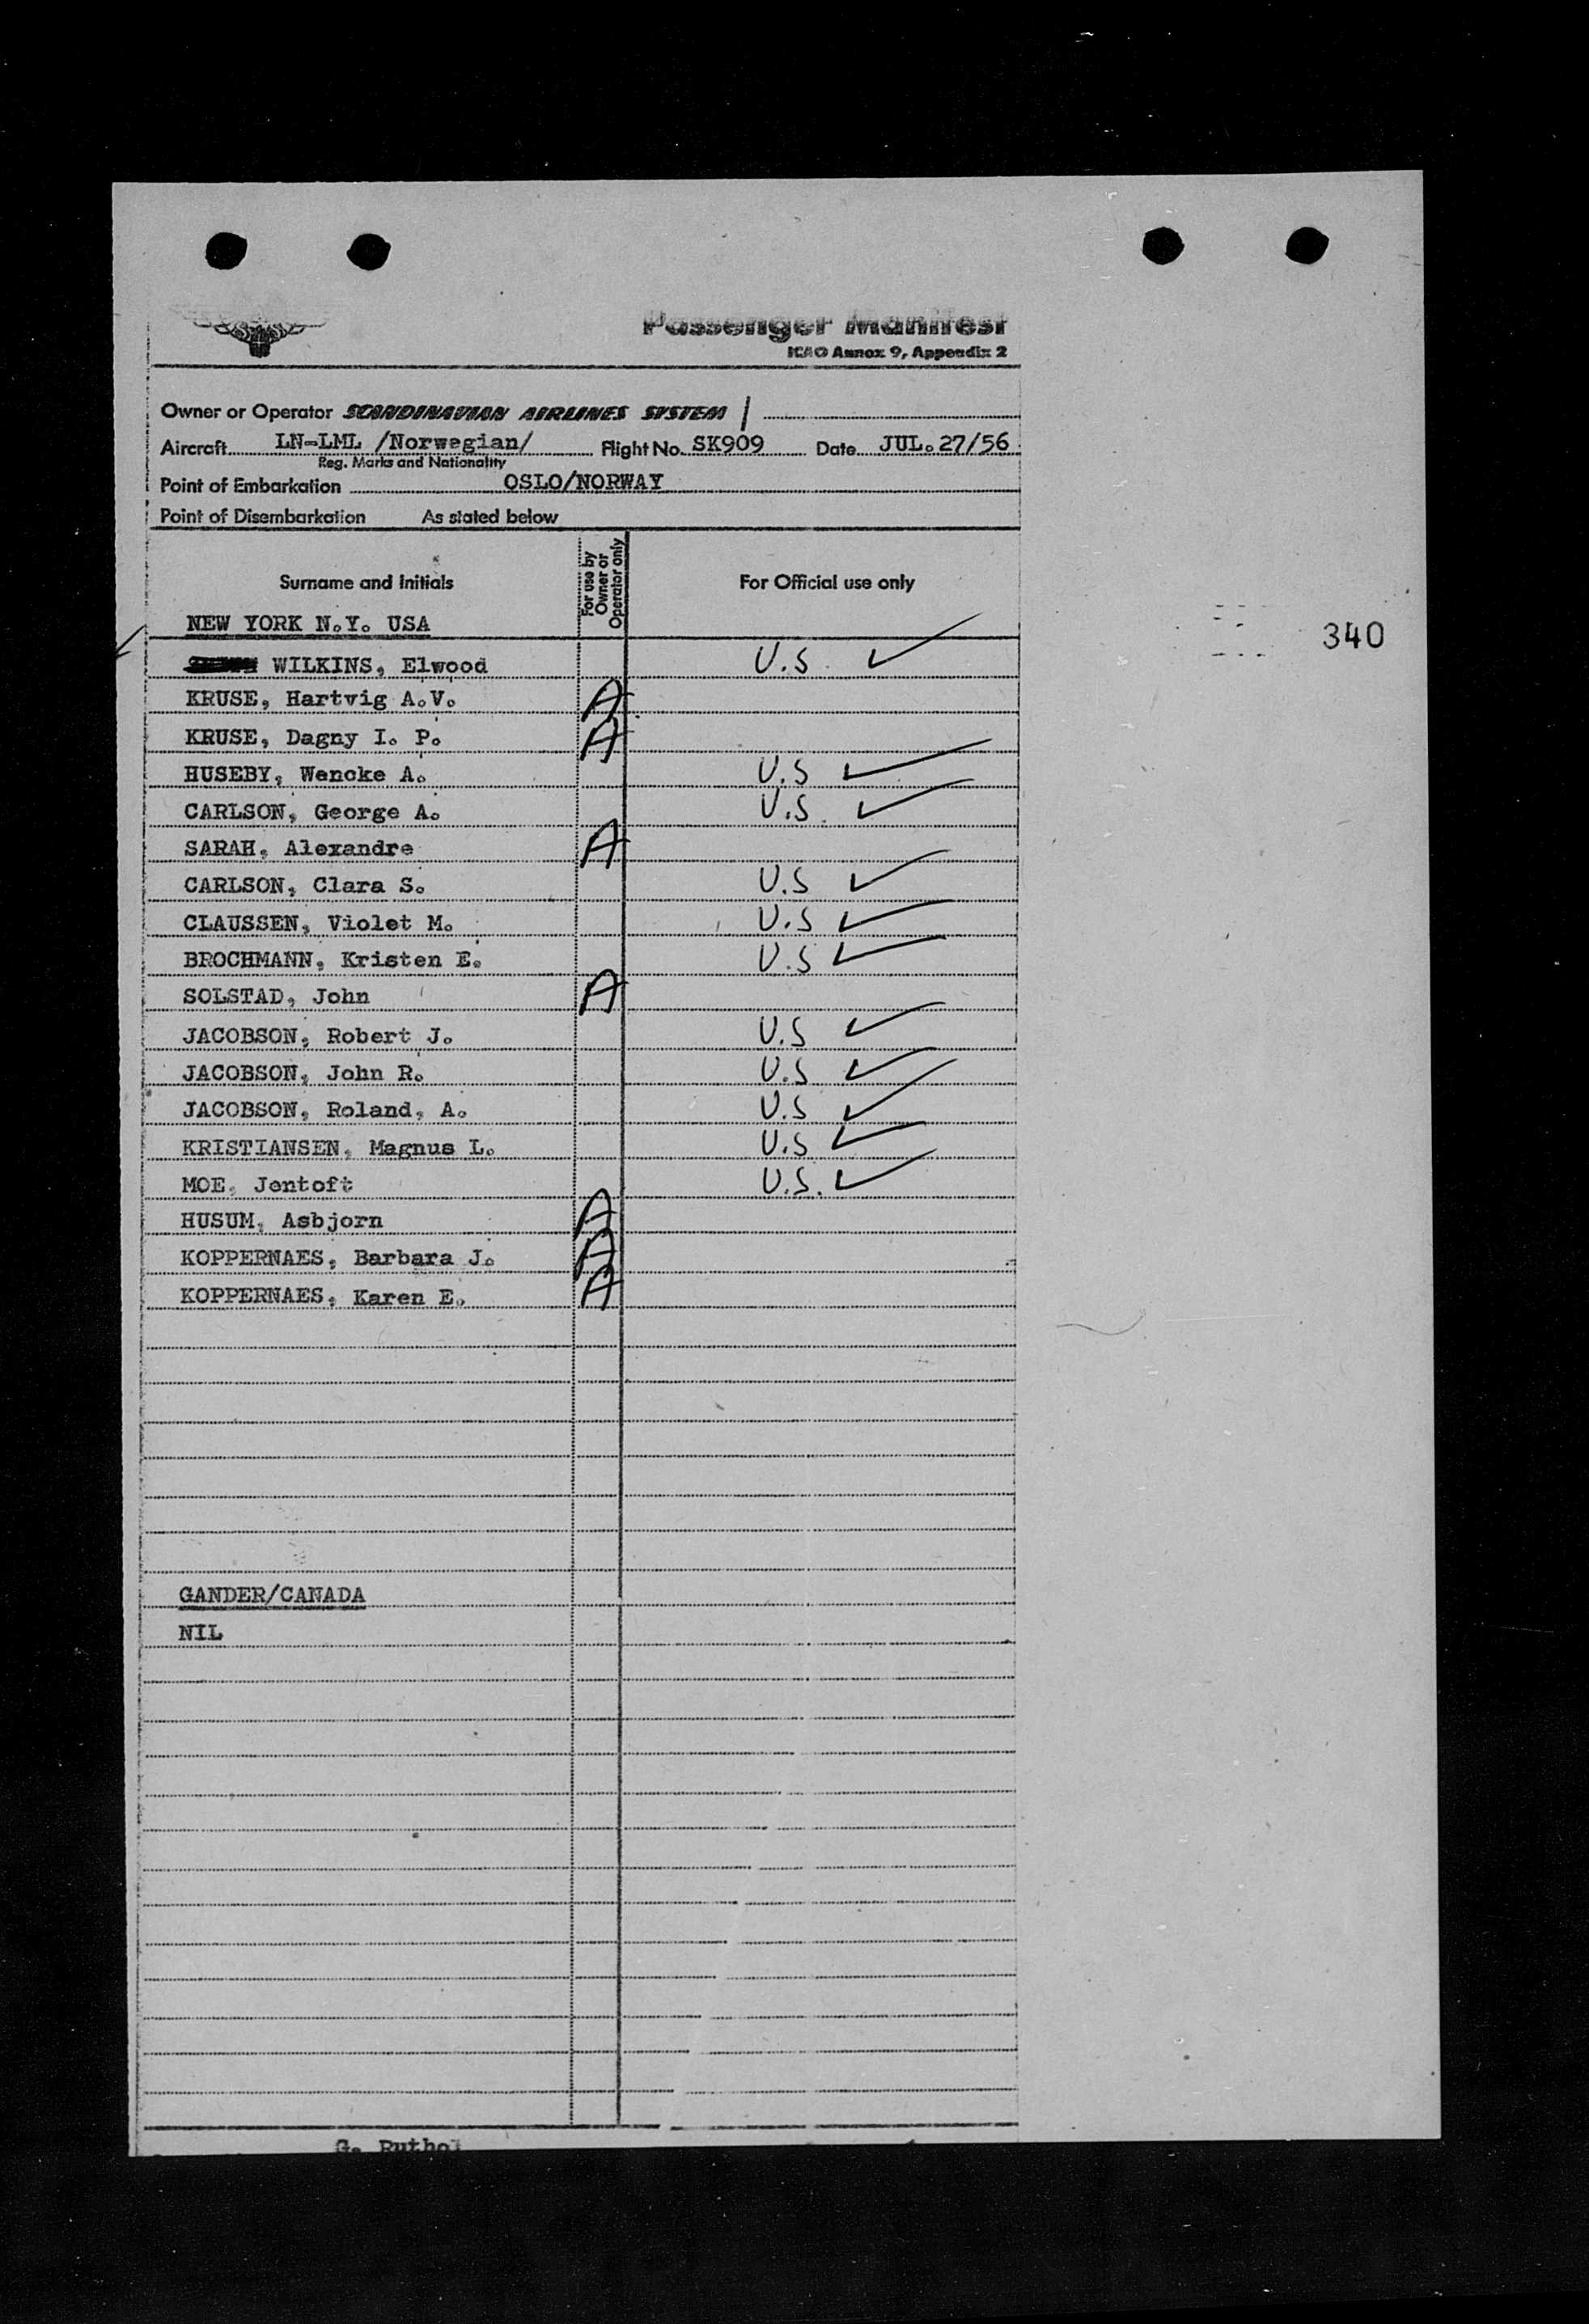 Passenger Manifest
ICAO Annex 9, Appendix 2
Owner or Operator SCANDINAVIAN AIRLINES SYSTEM
Aircraft LN-LML /Norwegian/ Flight No. SK909 Date JUL. 27/56
Reg. Marks and Nationality
Point of Embarkation OSLO/NORWAY
Point of Disembarkation As stated below
Surname and Initials For use by Owner or Operator only For Official use only
NEW YORK N.Y. USA
340
WILKINS, Elwood U.S. ✓
KRUSE, Hartvig A.V. A
KRUSE, Dagny I. P. A
HUSEBY, Wencke A. U.S ✓
CARLSON, George A. U.S. ✓
SARAH, Alexandre A
CARLSON, Clara S. U.S ✓
CLAUSSEN, Violet M. U.S ✓
BROCHMANN, Kristen E. U.S ✓
SOLSTAD, John A
JACOBSON, Robert J. U.S ✓
JACOBSON, John R. U.S ✓
JACOBSON, Roland, A. U.S ✓
KRISTIANSEN, Magnus L. U.S ✓
MOE, Jentoft U.S. ✓
HUSUM, Asbjorn A
KOPPERNAES, Barbara J. A
KOPPERNAES, Karen E. A
GANDER/CANADA
NIL
G.